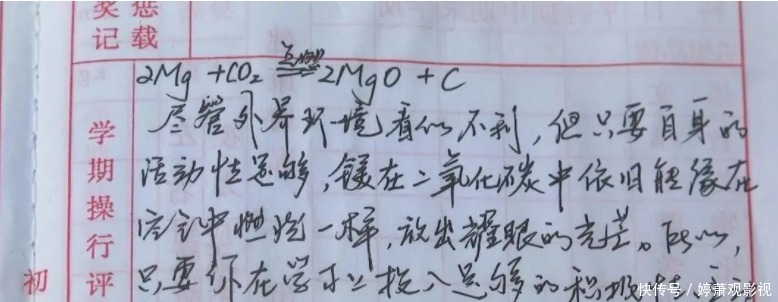 奖惩
记载
2Mg + CO₂ 点燃 2MgO + C
学期操行评
尽管外界环境看似不利，但只要自身的
活动性足够，镁在二氧化碳中依旧能像在
空气中燃烧一样，放出耀眼的光芒。所以，
只要你在学习上投入足够的积极
初
快传号 / 婷萧观影视